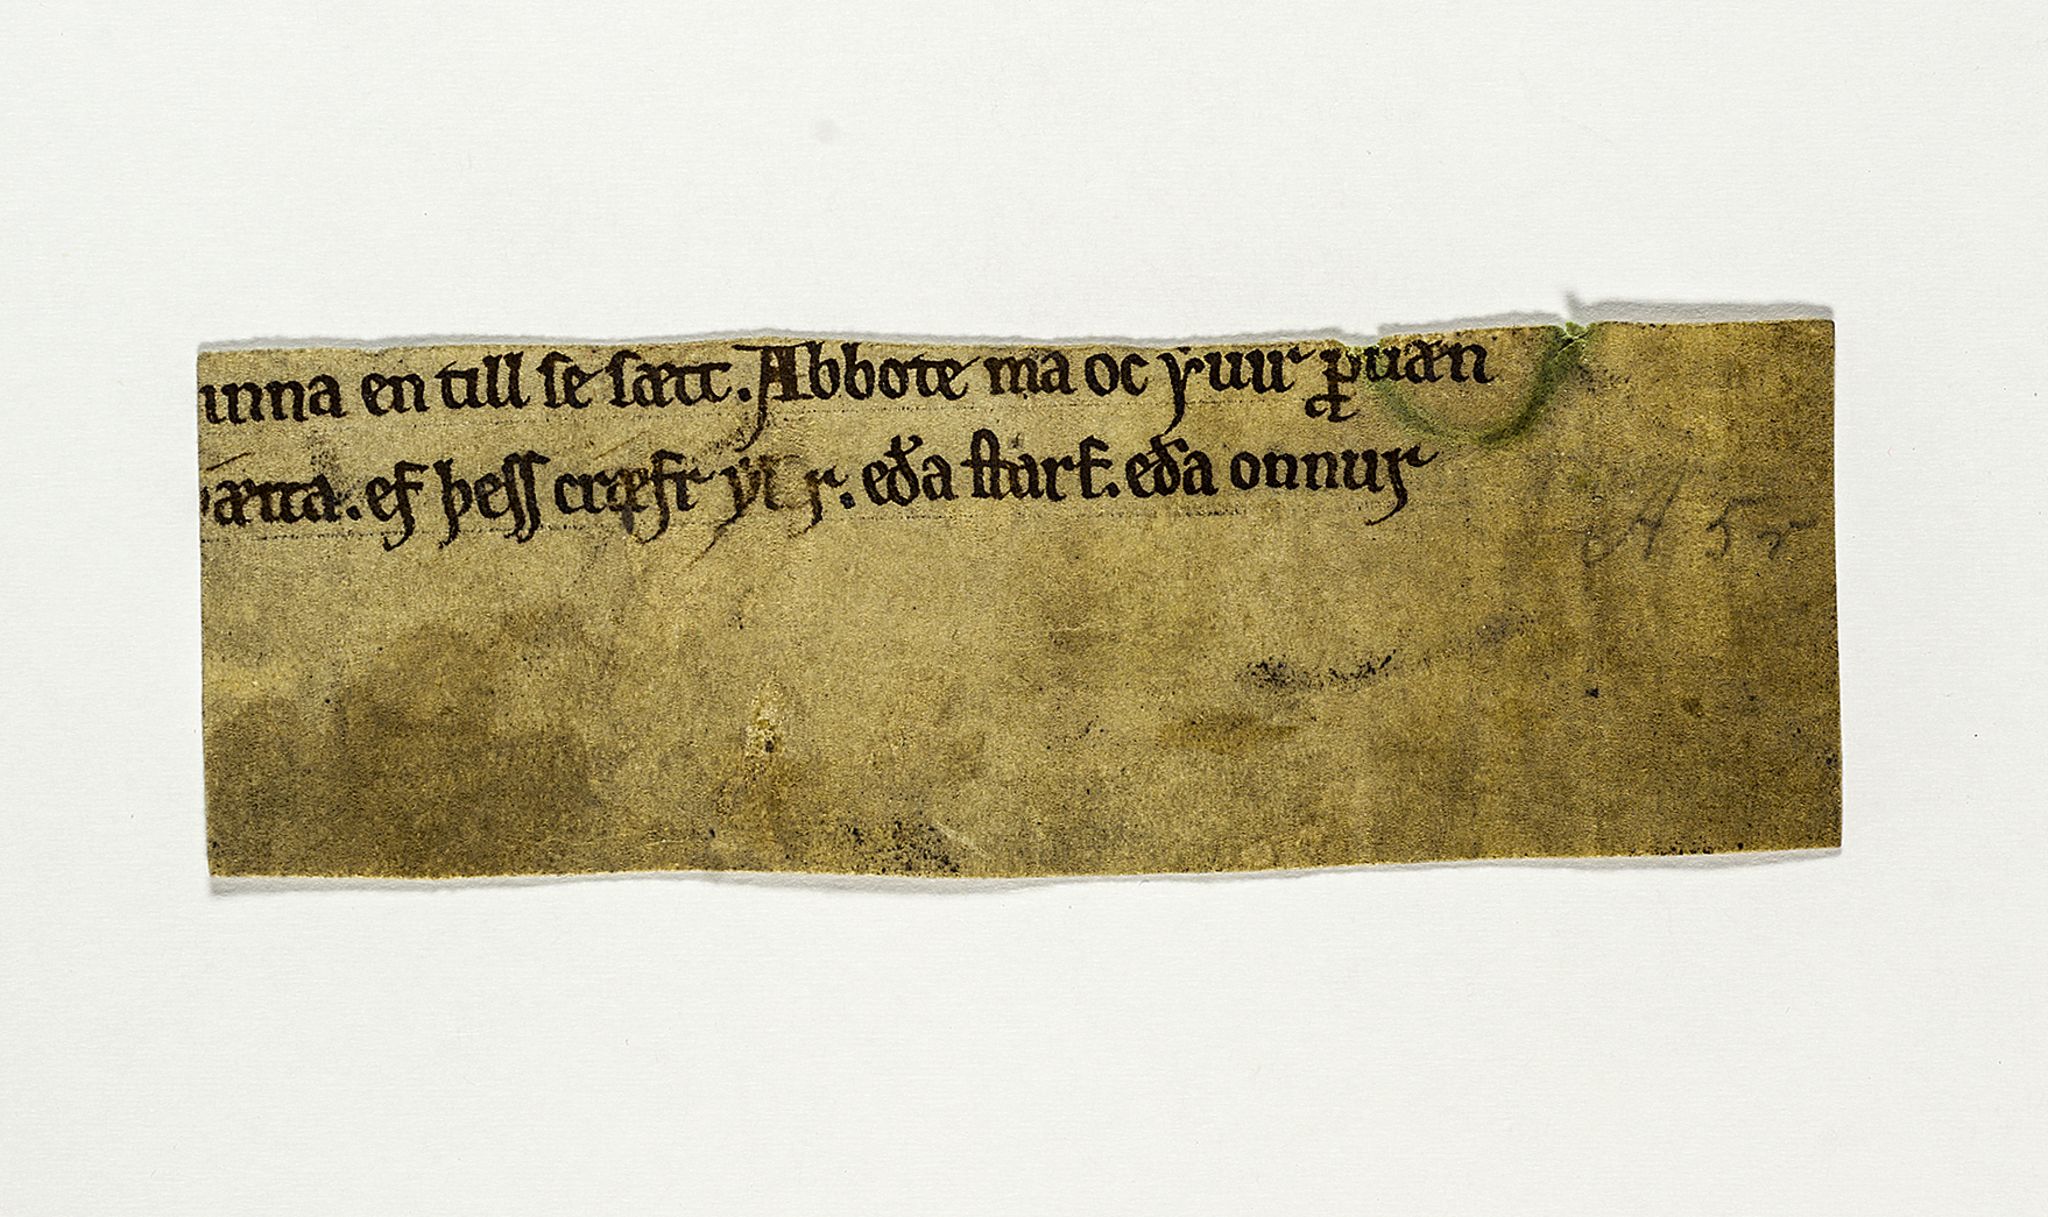 unna en till se sætt. Abbote ma oc yuir ꝑuæn
ætta. ef þess cræfr ẏt r. eða starf. eða onnur
A 5 r